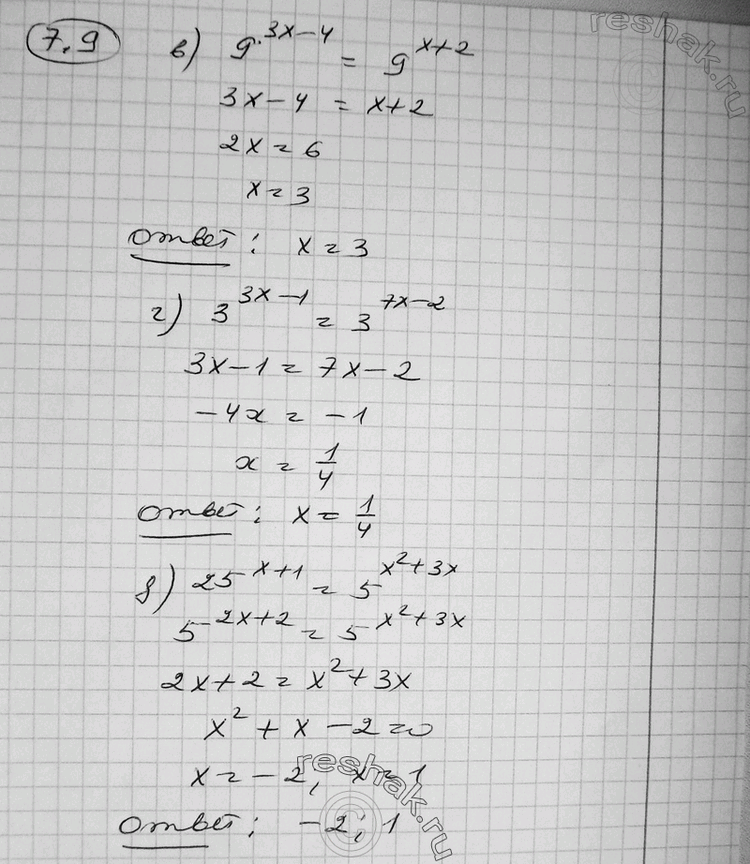 7.9 в) 9^{3x-4} = 9^{x+2}
3x-4 = x+2
2x = 6
x = 3
Ответ: x = 3
г) 3^{3x-1} = 3^{7x-2}
3x-1 = 7x-2
-4x = -1
x = 1/4
Ответ: x = 1/4
д) 25^{x+1} = 5^{x²+3x}
5^{2x+2} = 5^{x²+3x}
2x+2 = x²+3x
x²+x-2=0
x = -2, x = 1
Ответ: -2; 1
reshak.ru
reshak.ru